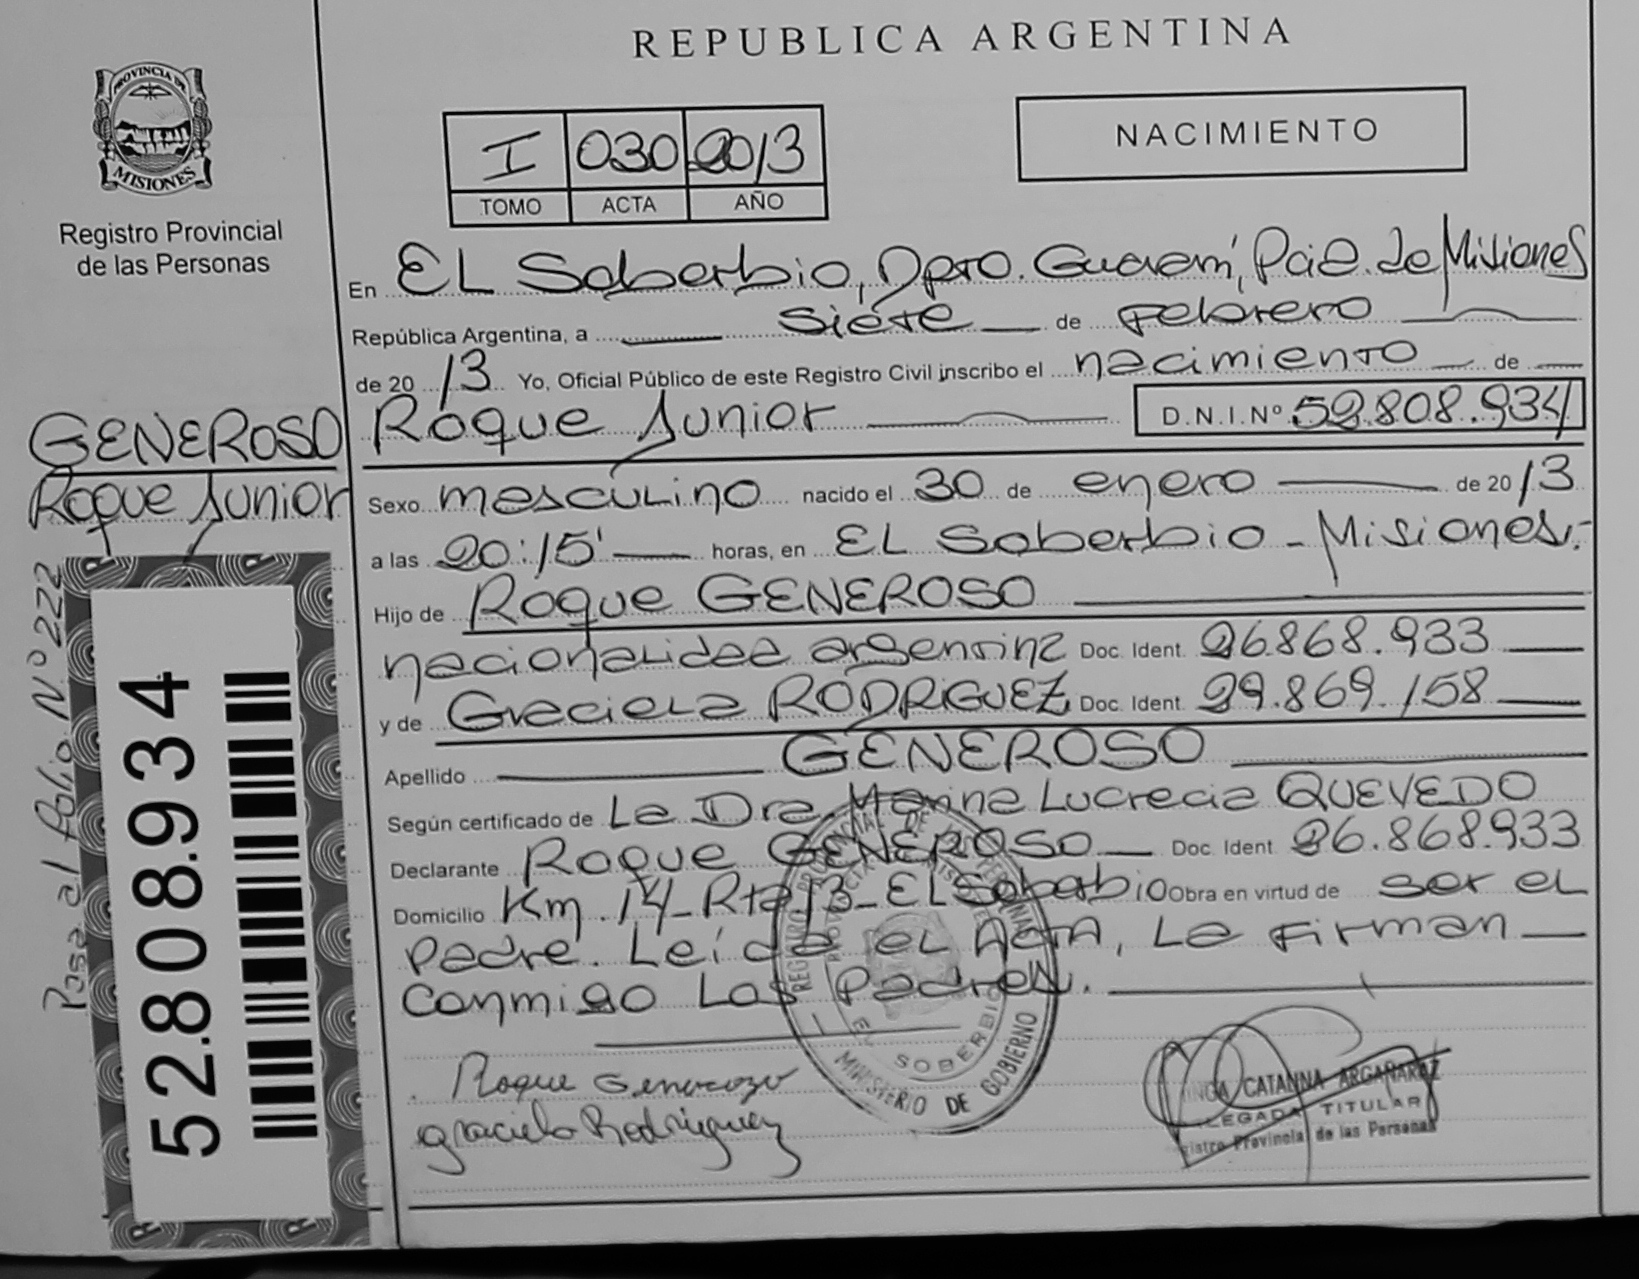 REPUBLICA ARGENTINA
PROVINCIA DE
MISIONES
Registro Provincial
de las Personas
I 030 2013
TOMO ACTA AÑO
NACIMIENTO
En EL Soberbio, Dpto. Guaraní, Pcia. de Misiones
República Argentina, a siete de Febrero
de 2013 Yo, Oficial Público de este Registro Civil inscribo el nacimiento de
Roque Junior D.N.I.Nº 52.808.934
GENEROSO
Roque Junior
Pasa al folio Nº 222
52808.934
Sexo masculino nacido el 30 de enero de 2013
a las 20:15' horas, en EL Soberbio - Misiones.-
Hijo de Roque GENEROSO
nacionalidad argentina Doc. Ident. 26.868.933
y de Graciela RODRIGUEZ Doc. Ident. 29.869.158
Apellido GENEROSO
Según certificado de La Dra. Marina Lucrecia QUEVEDO
Declarante Roque GENEROSO Doc. Ident. 26.868.933
Domicilio Km. 14-Rta 13-EL Soberbio Obra en virtud de ser el
padre. Leída el ACTA, La Firman
conmigo Los Padres.
EL SOBERBIO
MINISTERIO DE GOBIERNO
Roque Generozo
graciela Rodriguez
CATALINA ARGAÑARAZ
DELEGADA TITULAR
Registro Provincial de las Personas